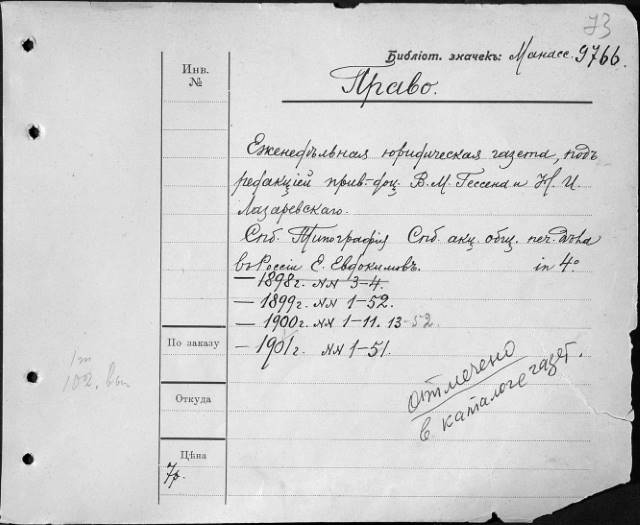 73
Библіот. значекъ: Манасс. 9766.
Инв.
№
Право.
Еженедѣльная юридическая газета, подъ
редакціей прив-доц. В. М. Гессена и Н. И.
Лазаревскаго.
Спб. Типографія Спб. акц. общ. печ. дѣла
въ Россіи Е. Евдокимовъ. in 4°
— 1898г. №№ 3-4.
— 1899г. №№ 1-52.
— 1900г. №№ 1-11. 13-52.
— 1901г. №№ 1-51.
По заказу
1т
102.
Откуда
отмечено
в каталоге газет.
Цѣна
7р.